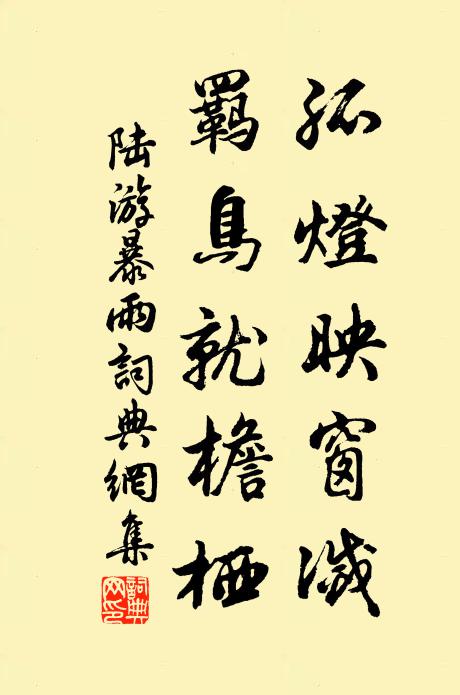 孤燈映窗滅
羈鳥就檐栖
陸游暴雨詞典網集
詞典網印